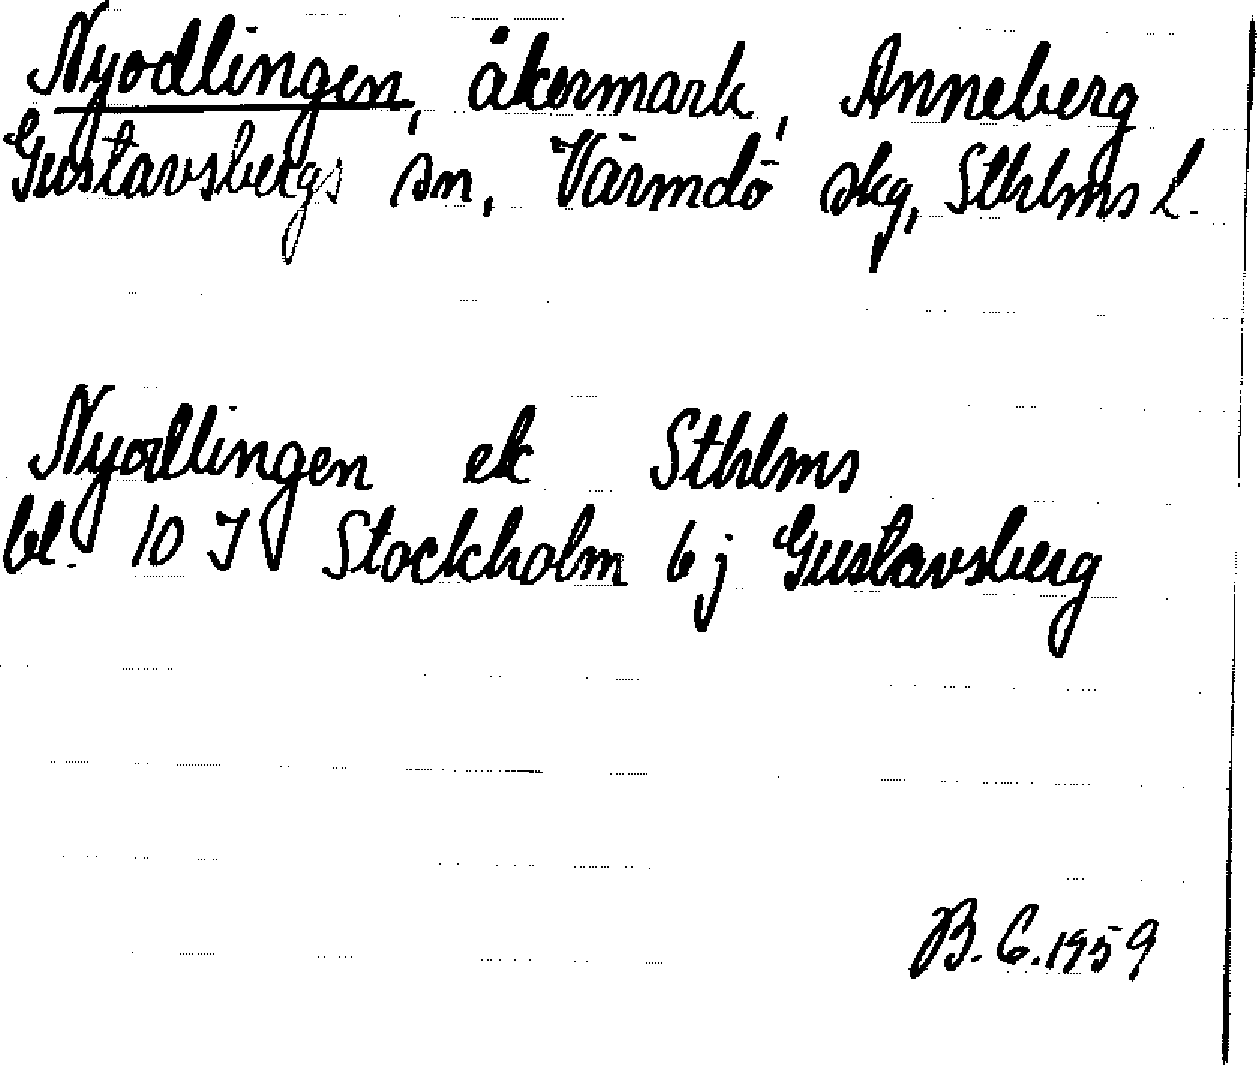 Nyodlingen, åkermark, Anneberg
Gustavsbergs sn, Värmdö skg, Sthlms l.
Nyodlingen ek Sthlms
bl. 10 I V Stockholm 6 j Gustavsberg
B. G. 1959